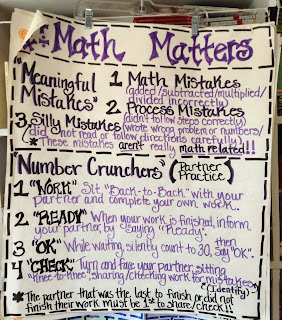 Math Matters
"Meaningful Mistakes"
1 Math Mistakes
(added/subtracted/multiplied/
divided incorrectly)
2 Process Mistakes
(didn't follow steps correctly)
3 Silly Mistakes (wrote wrong problem or numbers/
did not read or follow directions carefully)
* These mistakes aren't really math related!!
"Number Crunchers" (Partner Practice)
1 "WORK" Sit "Back-to-Back" with your
partner and complete your own work.
2 "READY" When your work is finished, inform
your partner by saying "Ready".
3 "OK" While waiting, silently count to 30, then say "OK".
4 "CHECK" Turn and face your partner, sitting
"knee-to-knee", sharing/checking work for mistakes
(Identify)
* The partner that was the last to finish or did not
finish their work must be 1st to share/check!!